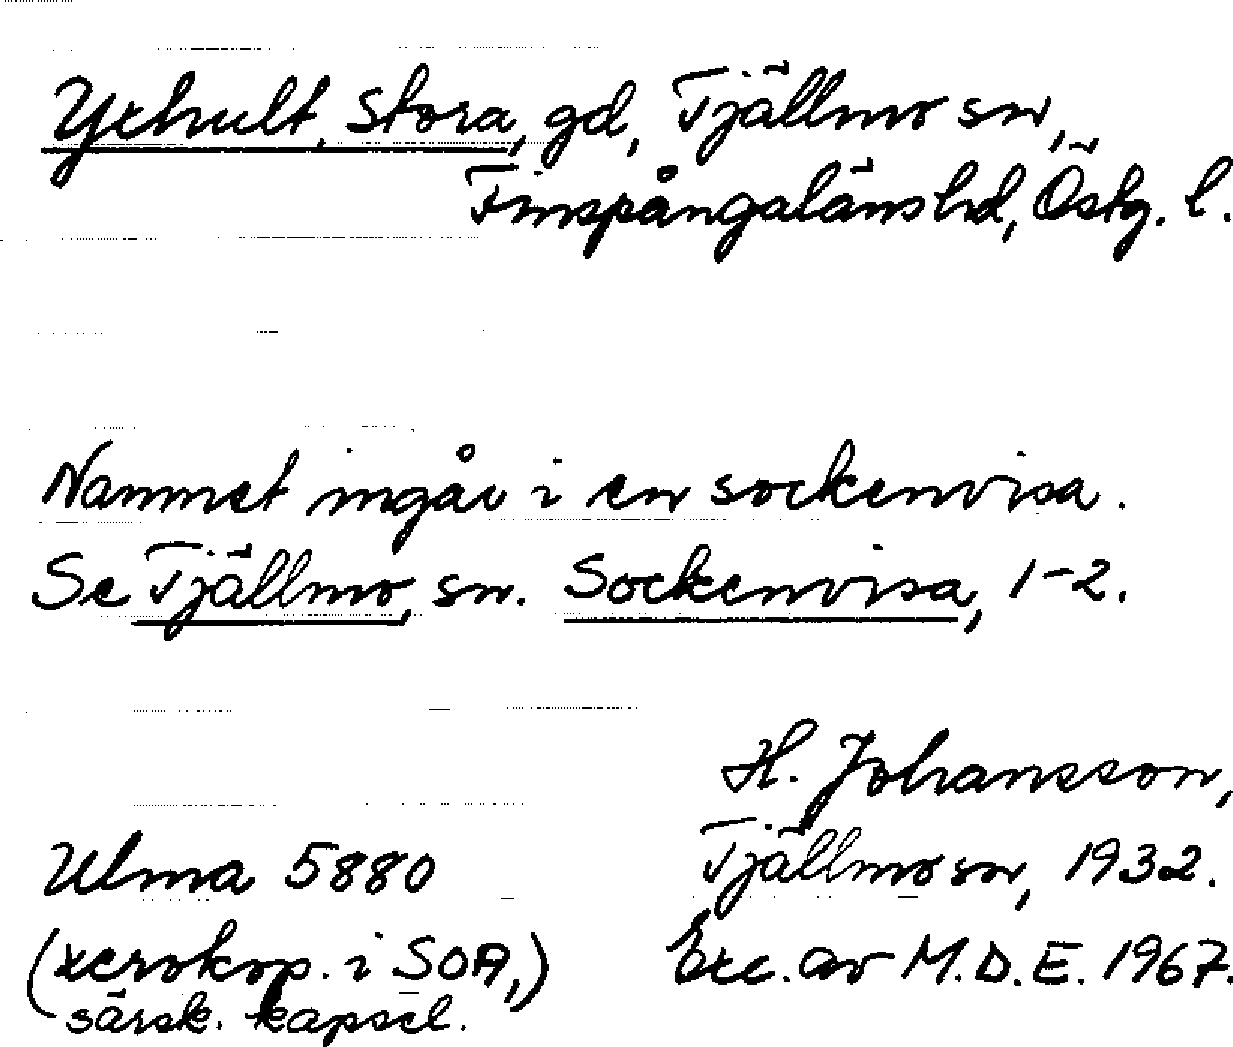 Yxhult, Stora, gd, Tjällmo sn,
Finspångalänshd, Östg. l.
Namnet ingår i en sockenvisa.
Se Tjällmo, sn. Sockenvisa, 1-2.
H. Johansson,
Ulma 5880 Tjällmo sn, 1932.
(xerokop. i SOA,) Exc. av M.D.E. 1967.
särsk. kapsel.